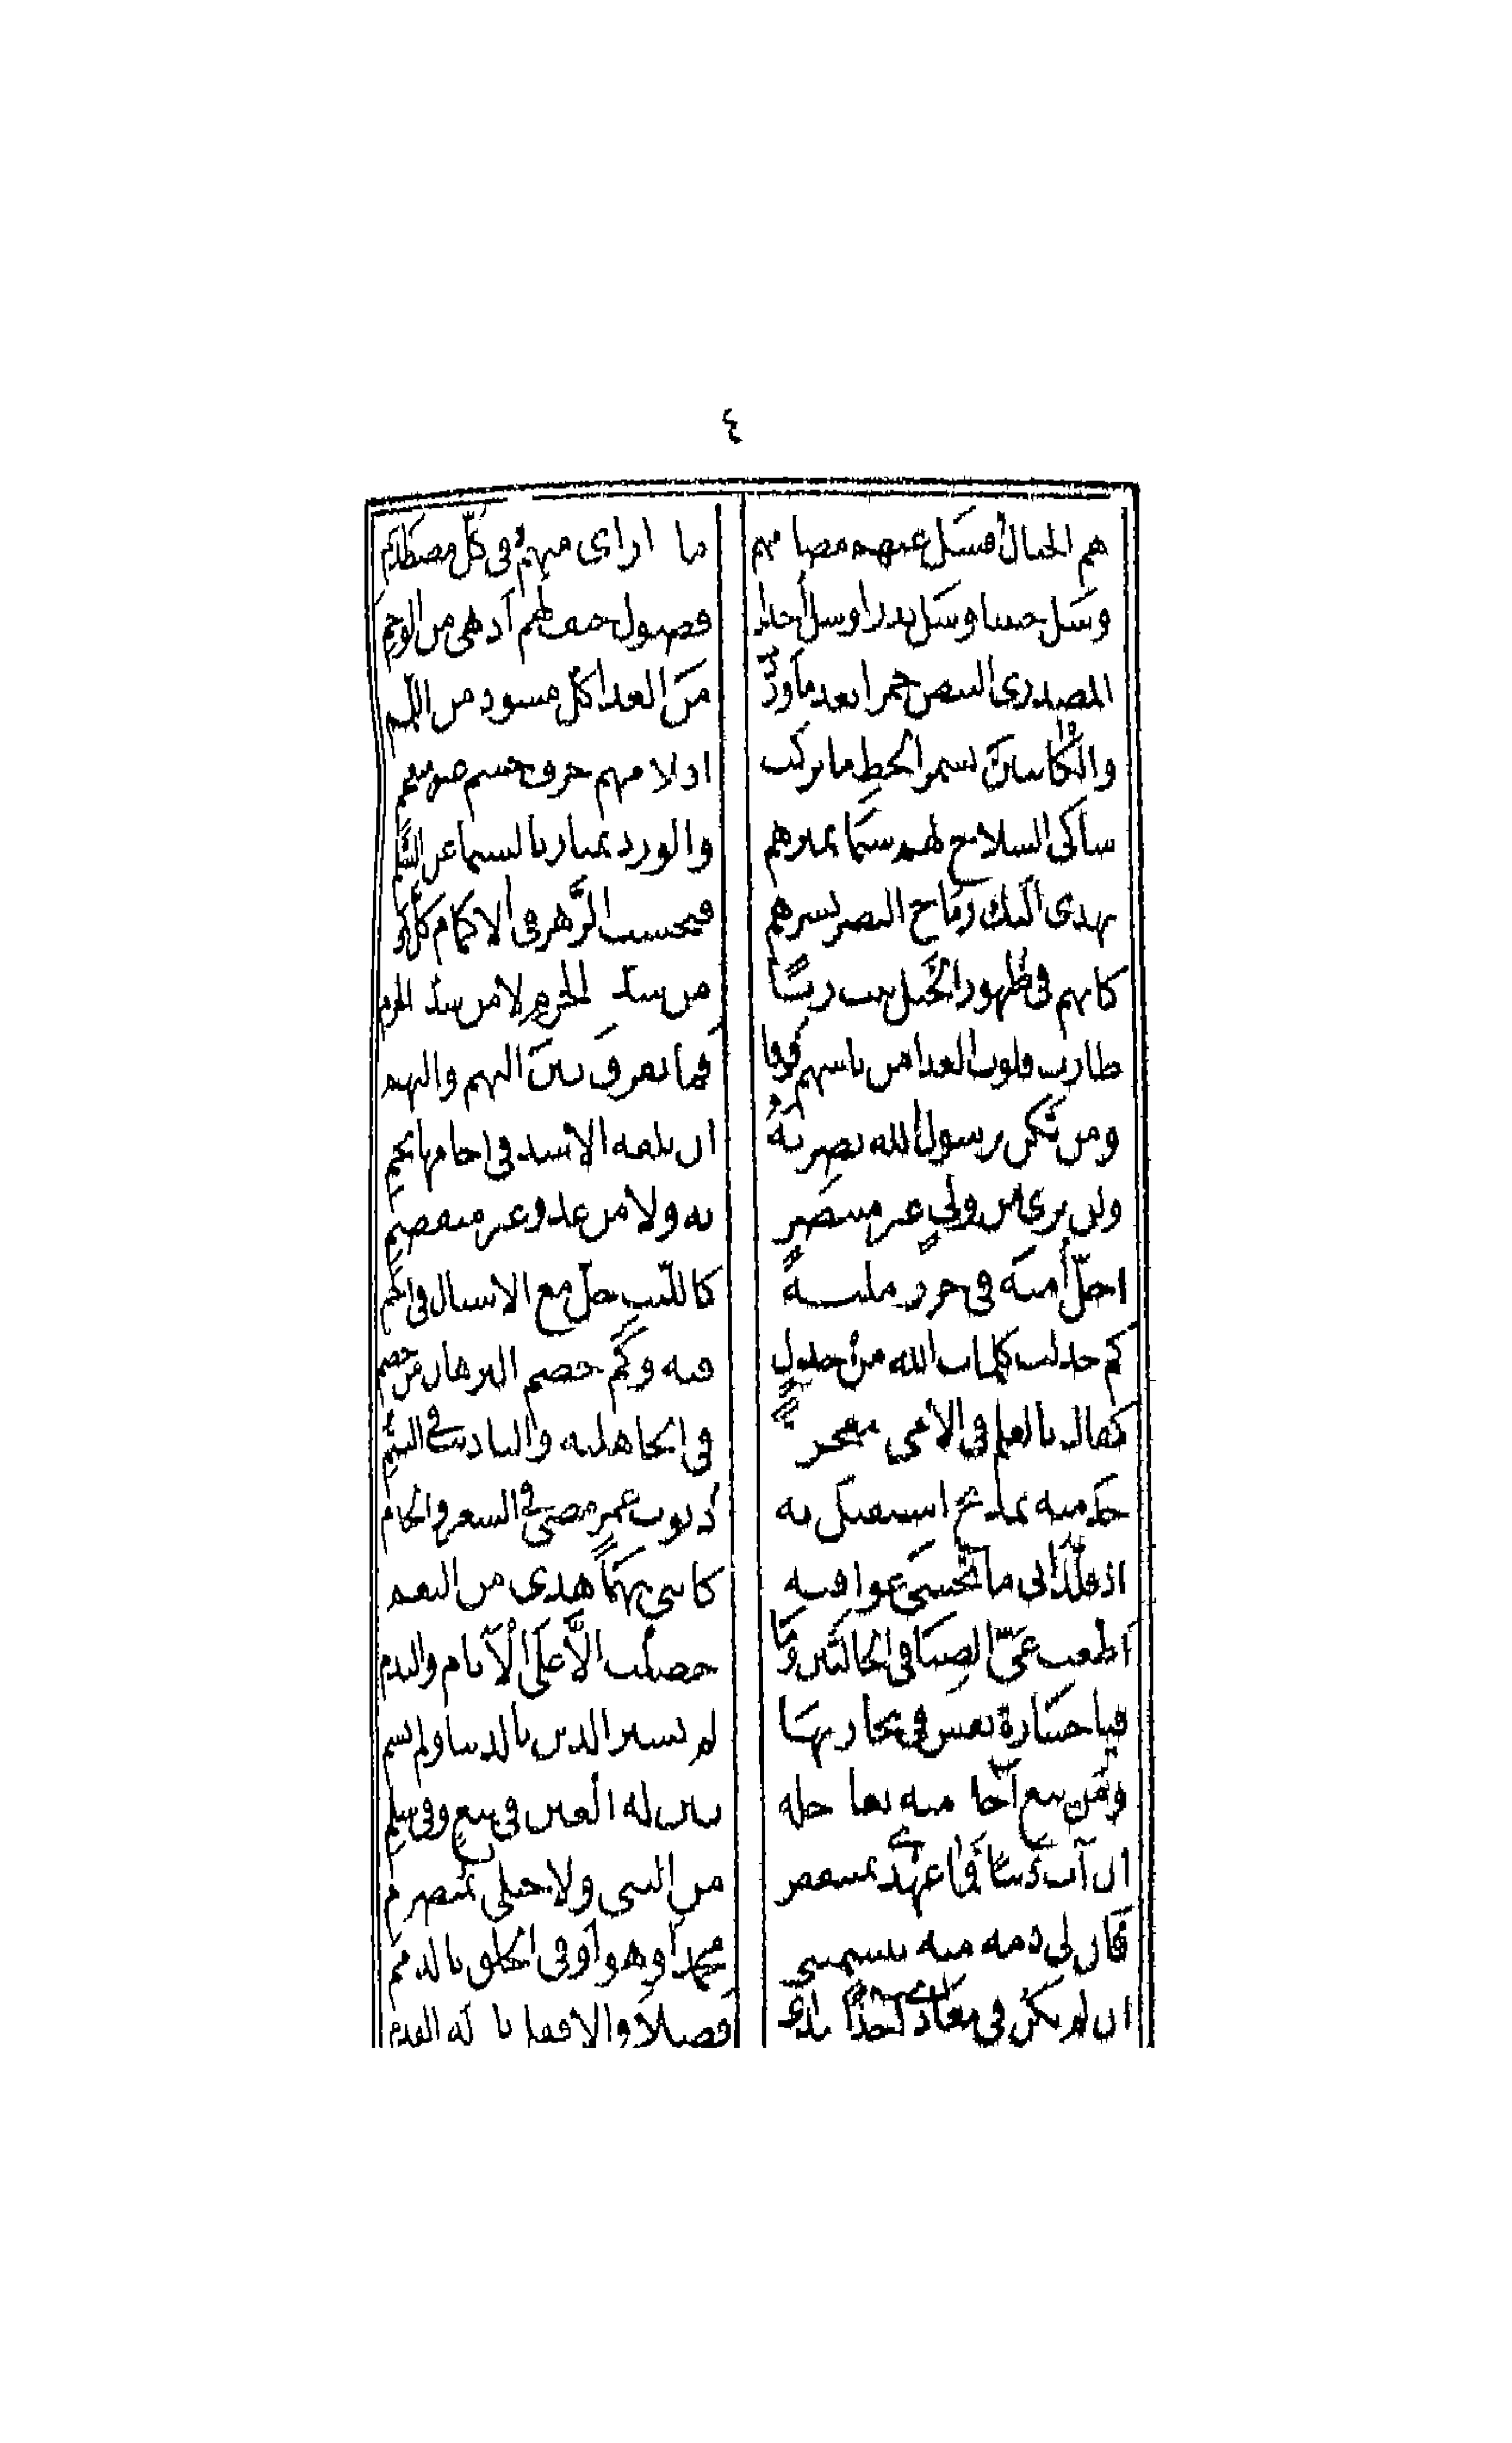 ٤
هم الجبال فسل عنهم مصادمهم ماذا راى منهم في كل مصطدم
وسل حنينا وسل بدرا وسل أحدا فصول حتف لهم أدهى من الوخم
المصدرى البيض حمرا بعد ما وردت من العدا كل مسود من اللمم
والكاتبين بسمر الخط ما تركت اقلامهم حرف جسم غير منعجم
شاكى السلاح لهم سيما تميزهم والورد يمتاز بالسيما عن السلم
تهدى اليك رياح النصر نشرهم فتحسب الزهر في الاكمام كل كمى
كانهم في ظهور الخيل نبت ربًا من شدة الحزم لا من شدة الحزم
طارت قلوب العدا من باسهم فرقا فما تفرق بين البهم والبهم
ومن تكن برسول الله نصرته ان تلقه الاسد في اجامها تجم
ولن ترى من ولي غير منتصر به ولا من عدو غير منقصم
احل أمته في حرز ملته كالليث حل مع الاشبال في اجم
كم جدلت كلمات الله من جدل فيه وكم خصم البرهان من خصم
كفاك بالعلم في الأمي معجزة في الجاهلية والتاديب في اليتم
خدمته بمديح استقيل به ذنوب عمر مضى في الشعر والخدم
اذ قلداني ما تخشى عواقبه كانني بهما هدى من النعم
اطعت غيّ الصبا في الحالتين وما حصلت الا على الآثام والندم
فيا خسارة نفس في تجارتها لم تشتر الدين بالدنيا ولم تسم
ومن يبع آجلا منه بعاجله يبن له الغبن في بيع وفي سلم
ان آت ذنبا فما عهدي بمنتقض من النبي ولا حبلي بمنصرم
فان لي ذمة منه بتسميتي محمدا وهو اوفى الخلق بالذمم
ان لم يكن في معادي آخذا بيدي فضلا والا فقل يا زلة القدم